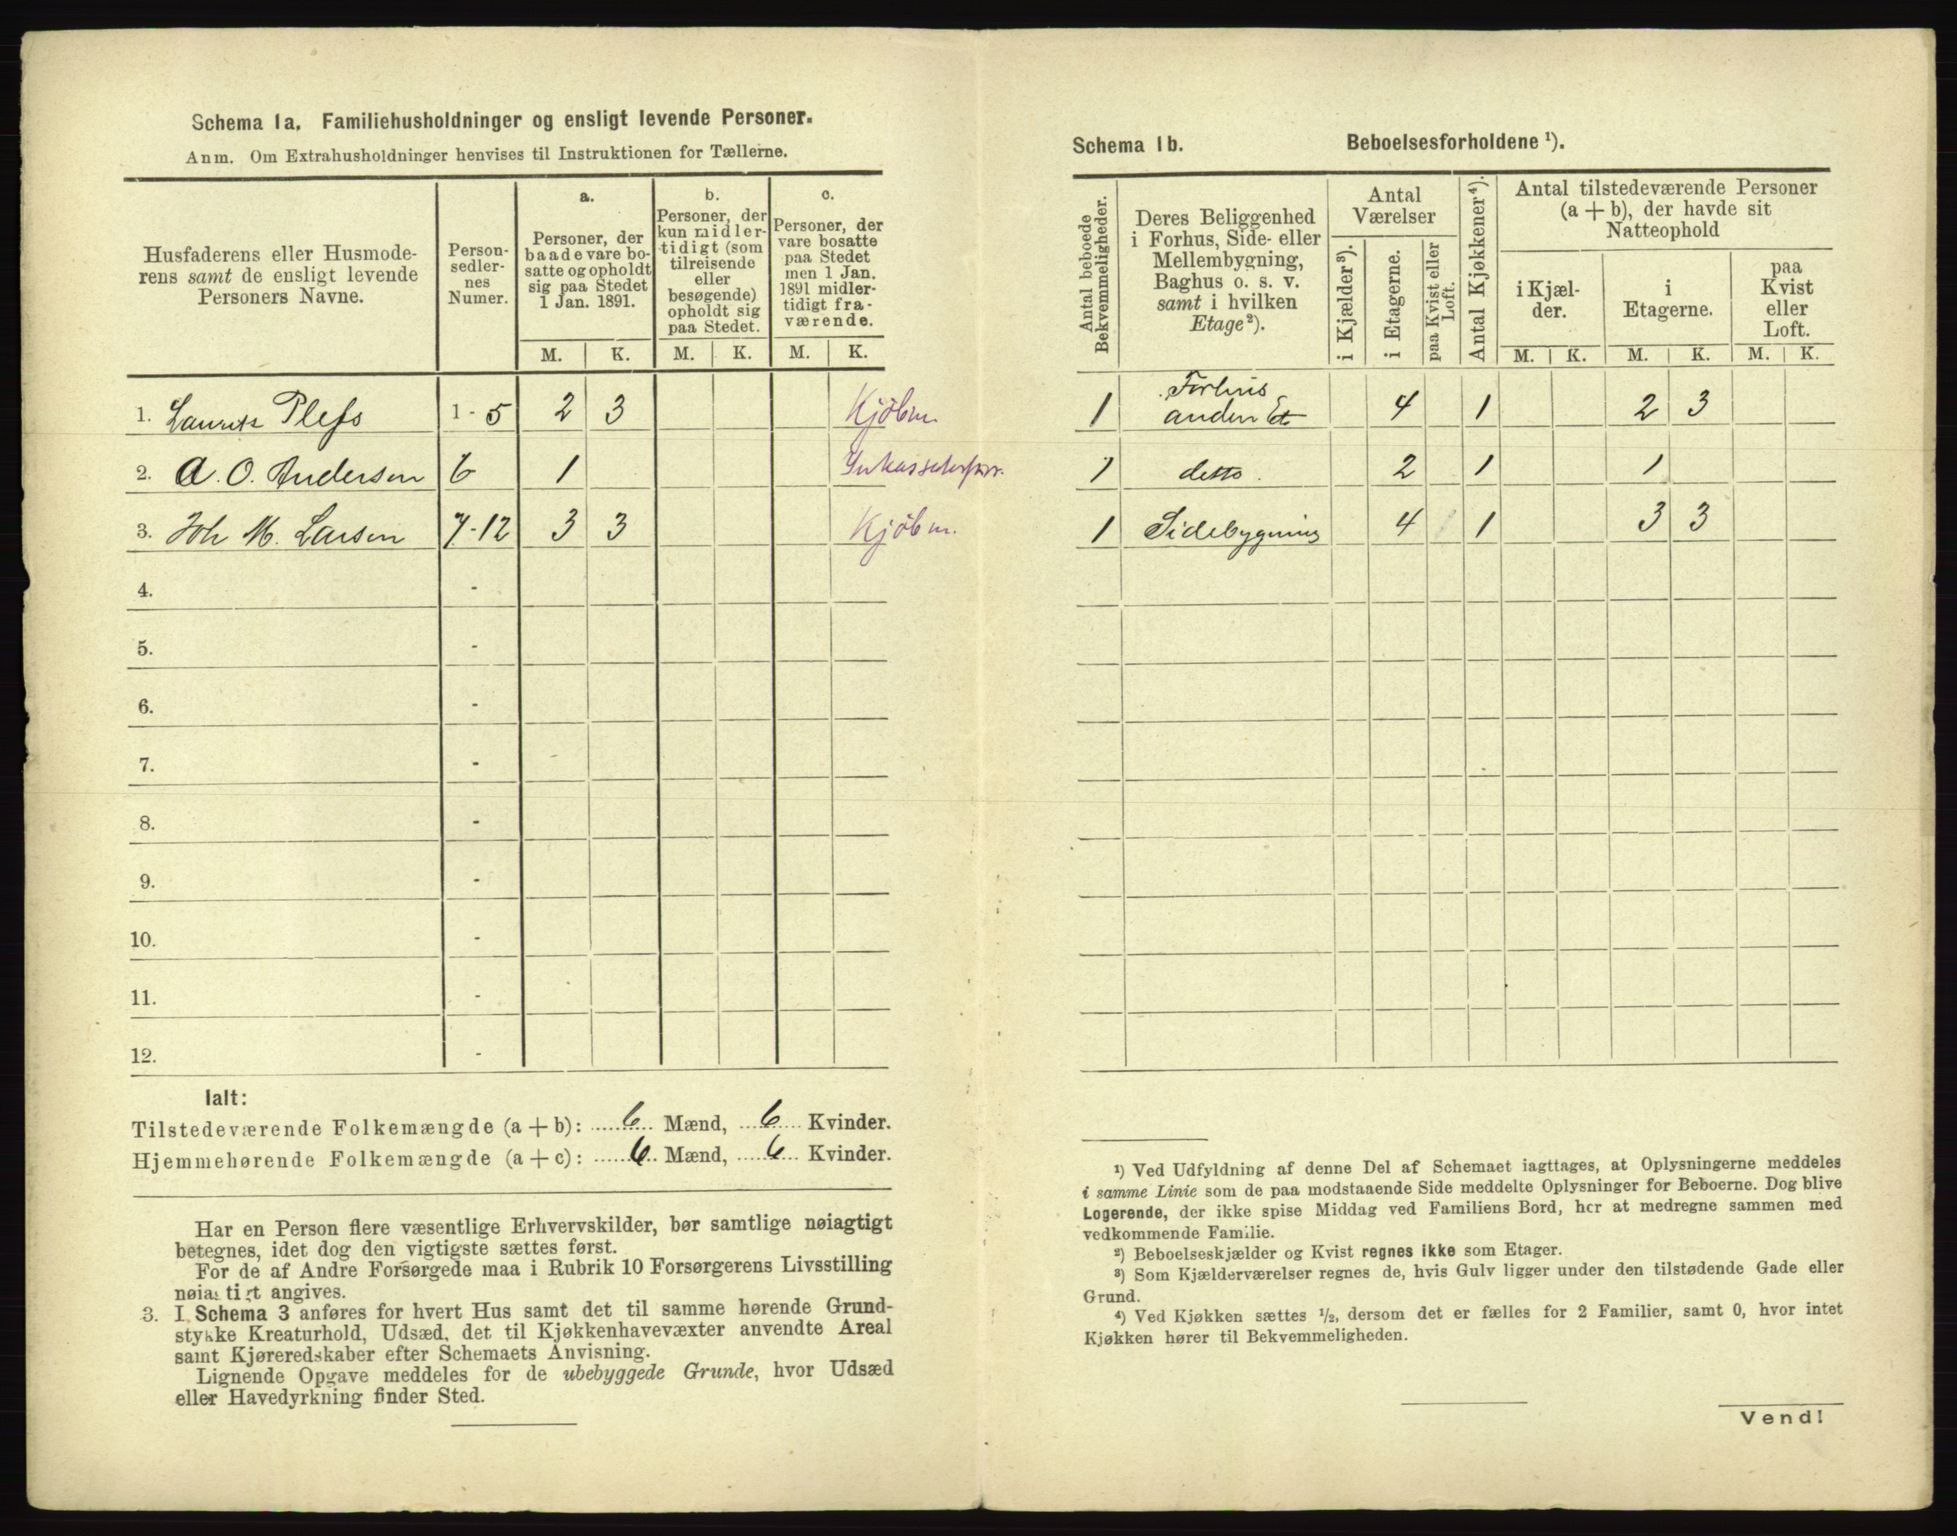 Schema 1a. Familiehusholdninger og ensligt levende Personer.
Anm. Om Extrahusholdninger henvises til Instruktionen for Tællerne.
Husfaderens eller Husmode-
rens samt de ensligt levende
Personers Navne.
Person-
sedler-
nes
Numer.
a.
Personer, der
baade vare bo-
satte og opholdt
sig paa Stedet
1 Jan. 1891.
b.
Personer, der
kun midler-
tidigt (som
tilreisende
eller
besøgende)
opholdt sig
paa Stedet.
c.
Personer, der
vare bosatte
paa Stedet
men 1 Jan.
1891 midler-
tidigt fra-
værende.
M. K. M. K. M. K.
1. Lauritz Plefs 1-5 2 3 Kjøbm.
2. A. O. Andersen 6 1
3. Joh M. Larsen 7-12 3 3 Kjøbm.
4. -
5. -
6. -
7. -
8. -
9. -
10. -
11. -
12. -
Ialt:
Tilstedeværende Folkemængde (a + b): 6 Mænd, 6 Kvinder.
Hjemmehørende Folkemængde (a + c): 6 Mænd, 6 Kvinder.
Har en Person flere væsentlige Erhvervskilder, bør samtlige nøiagtigt
betegnes, idet dog den vigtigste sættes først.
For de af Andre Forsørgede maa i Rubrik 10 Forsørgerens Livsstilling
nøiagtigt angives.
3. I Schema 3 anføres for hvert Hus samt det til samme hørende Grund-
stykke Kreaturhold, Udsæd, det til Kjøkkenhavevæxter anvendte Areal
samt Kjøreredskaber efter Schemaets Anvisning.
Lignende Opgave meddeles for de ubebyggede Grunde, hvor Udsæd
eller Havedyrkning finder Sted.
Schema 1b. Beboelsesforholdene ¹).
Antal beboede
Bekvemmeligheder.
Deres Beliggenhed
i Forhus, Side- eller
Mellembygning,
Baghus o. s. v.
samt i hvilken
Etage²).
Antal
Værelser
i Kjælder³).
i Etagerne.
paa Kvist eller
Loft.
Antal Kjøkkener⁴).
Antal tilstedeværende Personer
(a + b), der havde sit
Natteophold
i Kjæl-
der.
i
Etagerne.
paa
Kvist
eller
Loft.
M. K. M. K. M. K.
1 Forhus
anden Et 4 1 2 3
1 detto. 2 1 1
1 Sidebygning 4 1 3 3
¹) Ved Udfyldning af denne Del af Schemaet iagttages, at Oplysningerne meddeles
i samme Linie som de paa modstaaende Side meddelte Oplysninger for Beboerne. Dog blive
Logerende, der ikke spise Middag ved Familiens Bord, her at medregne sammen med
vedkommende Familie.
²) Beboelseskjælder og Kvist regnes ikke som Etager.
³) Som Kjælderværelser regnes de, hvis Gulv ligger under den tilstødende Gade eller
Grund.
⁴) Ved Kjøkken sættes ½, dersom det er fælles for 2 Familier, samt 0, hvor intet
Kjøkken hører til Bekvemmeligheden.
Vend!